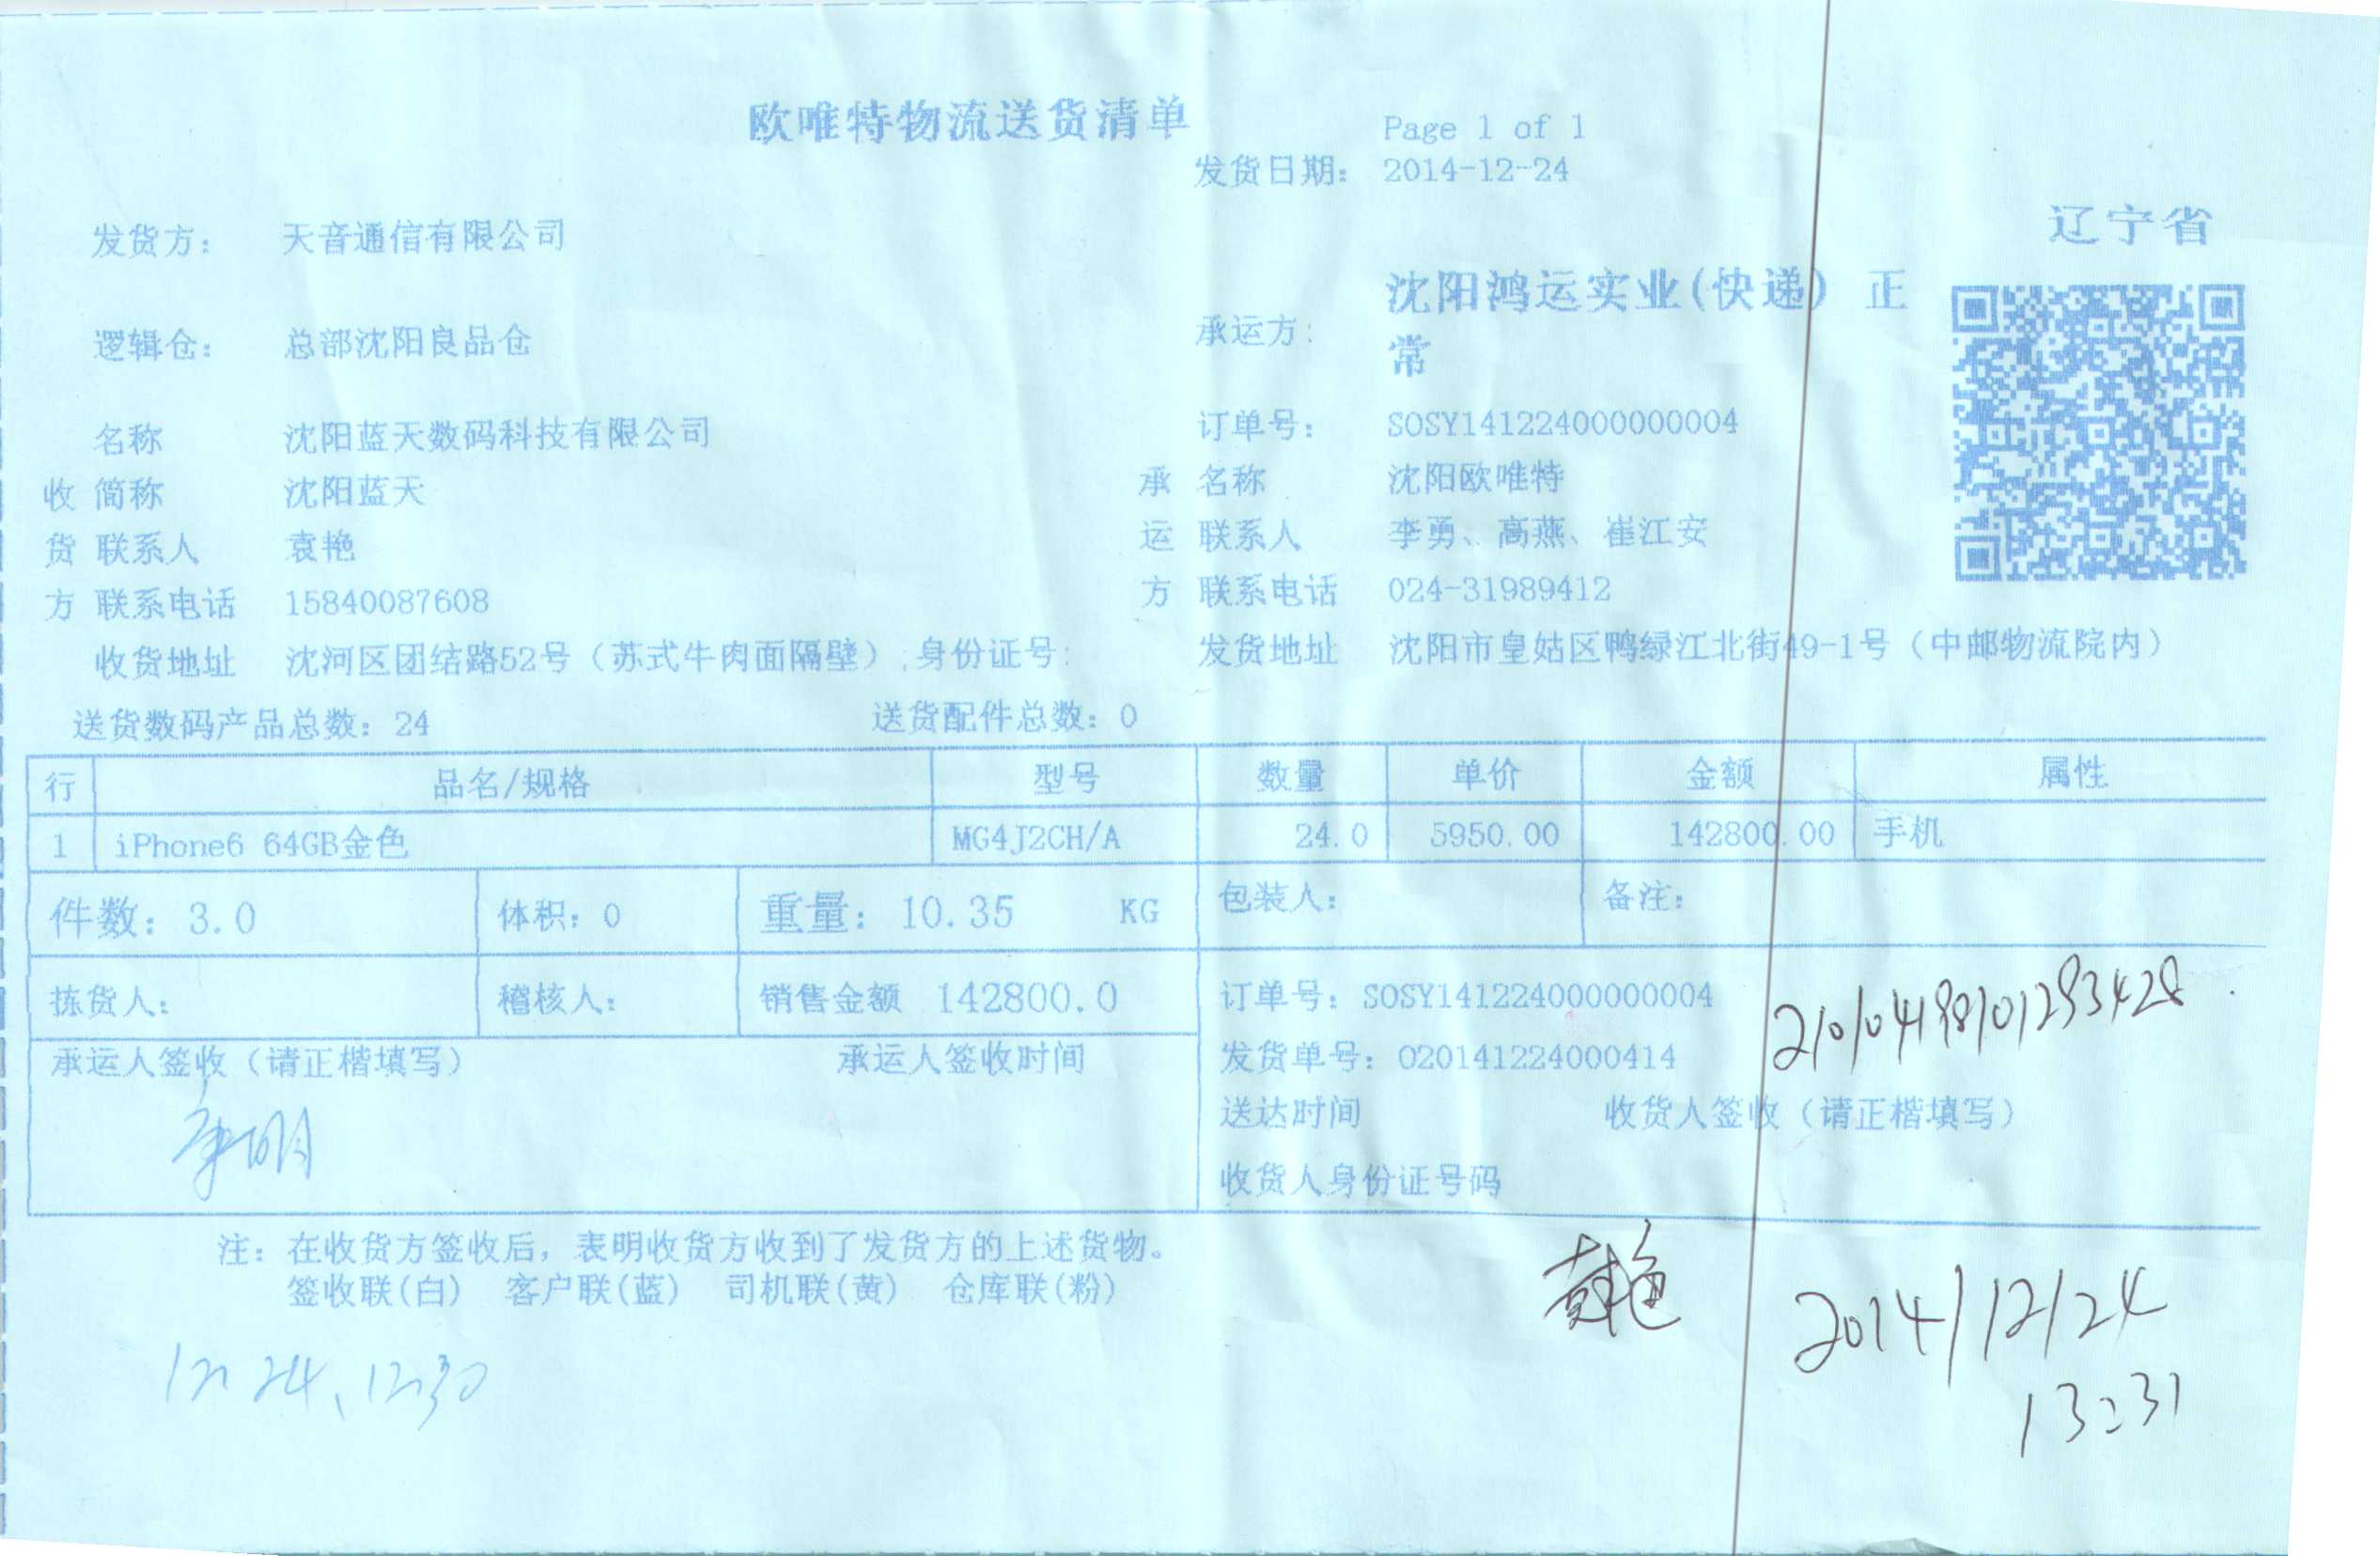 欧唯特物流送货清单
Page 1 of 1
发货日期: 2014-12-24
辽宁省
发货方: 天音通信有限公司
承运方: 沈阳鸿运实业(快递) 正常
逻辑仓: 总部沈阳良品仓
名称 沈阳蓝天数码科技有限公司 订单号: SOSY141224000000004
收 简称 沈阳蓝天 承 名称 沈阳欧唯特
货 联系人 袁艳 运 联系人 李勇、高燕、崔江安
方 联系电话 15840087608 方 联系电话 024-31989412
收货地址 沈河区团结路52号（苏式牛肉面隔壁）,身份证号: 发货地址 沈阳市皇姑区鸭绿江北街49-1号（中邮物流院内）
送货数码产品总数: 24 送货配件总数: 0
行 品名/规格 型号 数量 单价 金额 属性
1 iPhone6 64GB金色 MG4J2CH/A 24.0 5950.00 142800.00 手机
件数: 3.0 体积: 0 重量: 10.35 KG 包装人: 备注:
拣货人: 稽核人: 销售金额 142800.0 订单号: SOSY141224000000004
210104198101293428
承运人签收（请正楷填写） 承运人签收时间 发货单号: 020141224000414
送达时间 收货人签收（请正楷填写）
收货人身份证号码
注: 在收货方签收后，表明收货方收到了发货方的上述货物。
签收联(白) 客户联(蓝) 司机联(黄) 仓库联(粉)
袁艳 2014/12/24
13:31
12.24、12:30